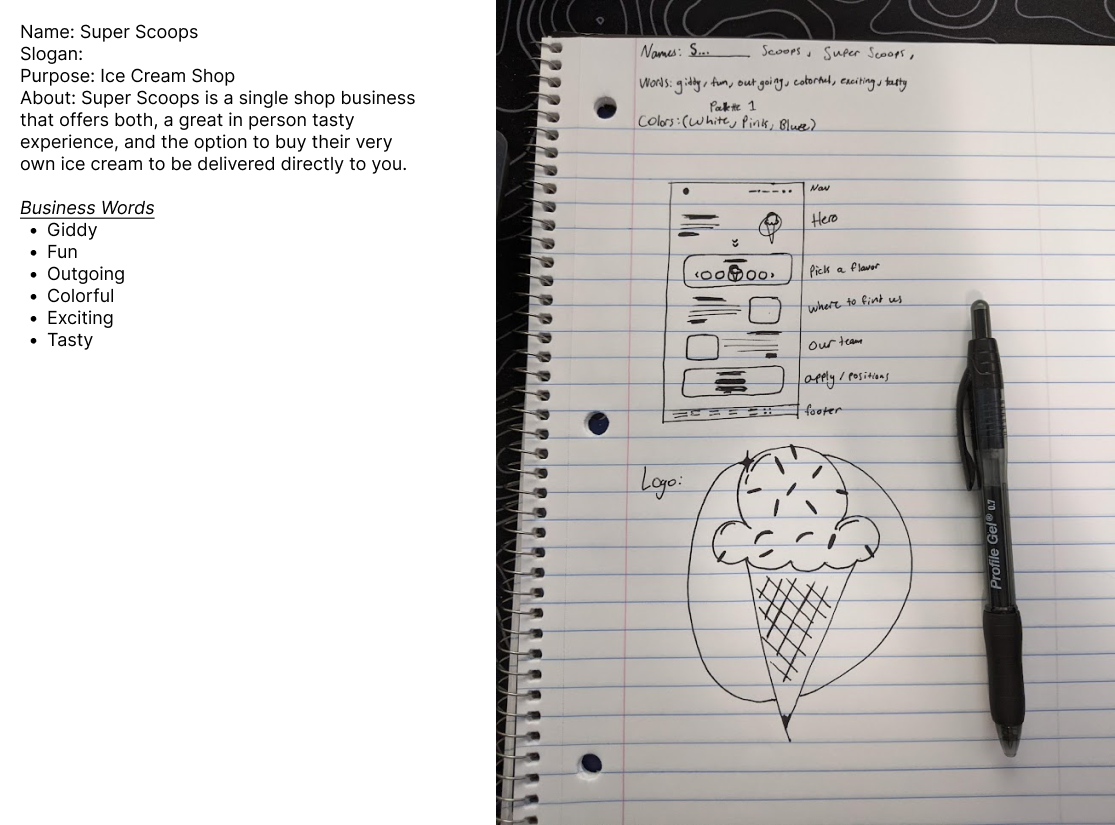 Name: Super Scoops
Slogan:
Purpose: Ice Cream Shop
About: Super Scoops is a single shop business
that offers both, a great in person tasty
experience, and the option to buy their very
own ice cream to be delivered directly to you.
Business Words
• Giddy
• Fun
• Outgoing
• Colorful
• Exciting
• Tasty
Names: S... Scoops, Super Scoops,
Words: giddy, fun, outgoing, colorful, exciting, tasty
Palette 1
Colors: (White, Pink, Blue)
Nav
Hero
Pick a flavor
where to find us
our team
apply / positions
footer
Logo:
Profile Gel® 0.7